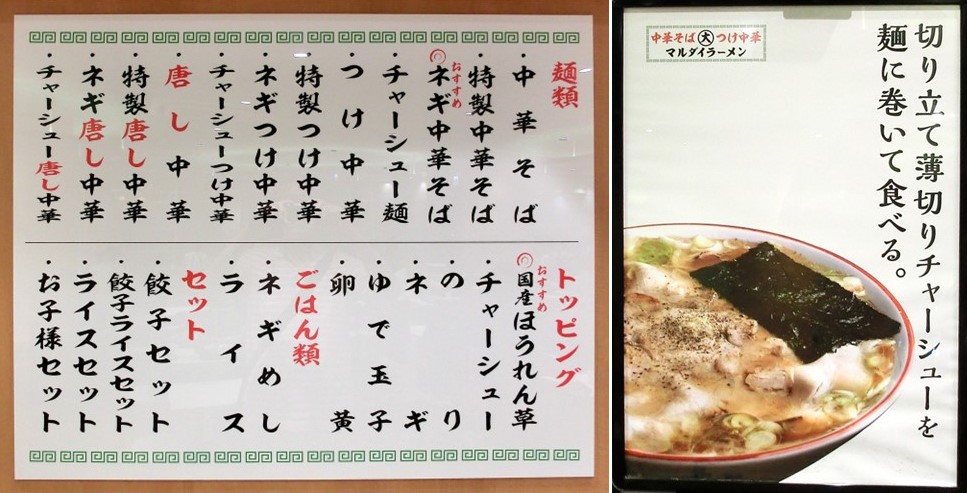 麺類
・中華そば
・特製中華そば
おすすめ
ネギ中華そば
・チャーシュー麺
・つけ中華
・特製つけ中華
・ネギつけ中華
・チャーシューつけ中華
・唐し中華
・特製唐し中華
・ネギ唐し中華
・チャーシュー唐し中華
トッピング
おすすめ
国産ほうれん草
・チャーシュー
・のり
・ネギ
・ゆで玉子
・卵黄
ごはん類
・ネギめし
・ライス
セット
・餃子セット
・餃子ライスセット
・ライスセット
・お子様セット
中華そば 大 つけ中華
マルダイラーメン
切り立て薄切りチャーシューを
麺に巻いて食べる。